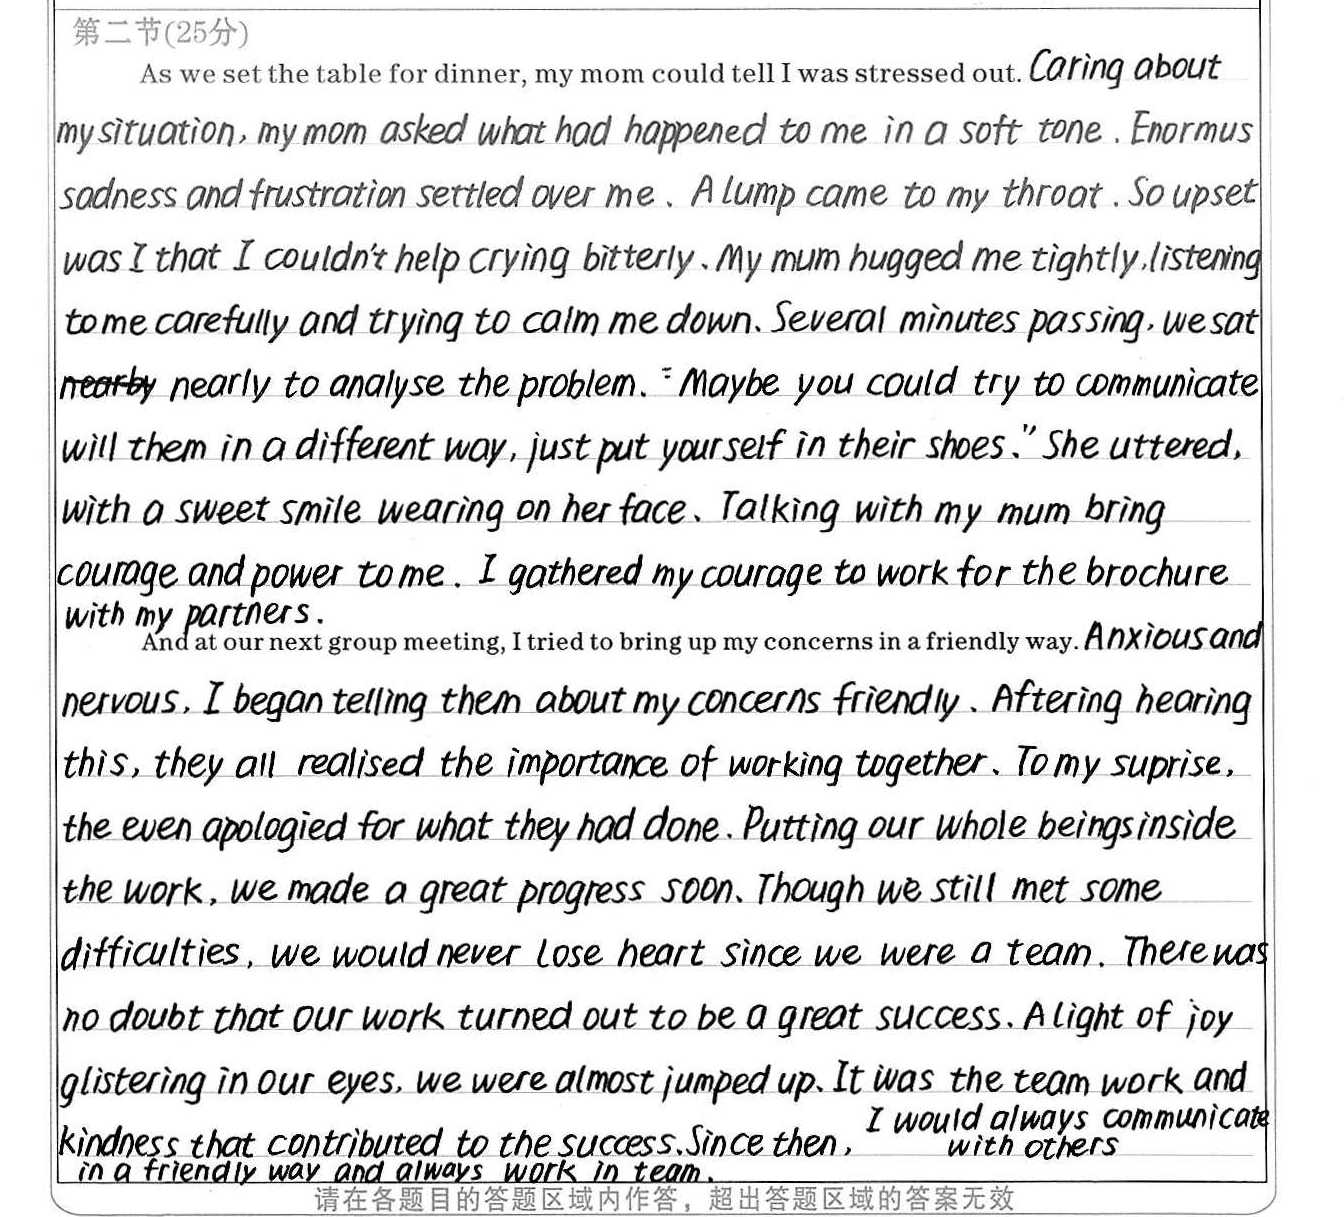 第二节(25分)
As we set the table for dinner, my mom could tell I was stressed out. Caring about
my situation, my mom asked what had happened to me in a soft tone. Enormus
sadness and frustration settled over me. A lump came to my throat. So upset
was I that I couldn't help crying bitterly. My mum hugged me tightly, listening
to me carefully and trying to calm me down. Several minutes passing, we sat
nearby nearly to analyse the problem. "Maybe you could try to communicate
will them in a different way, just put yourself in their shoes." She uttered,
with a sweet smile wearing on her face. Talking with my mum bring
courage and power to me. I gathered my courage to work for the brochure
with my partners.
And at our next group meeting, I tried to bring up my concerns in a friendly way. Anxious and
nervous, I began telling them about my concerns friendly. Aftering hearing
this, they all realised the importance of working together. To my suprise,
the even apologied for what they had done. Putting our whole beings inside
the work, we made a great progress soon. Though we still met some
difficulties, we would never lose heart since we were a team. There was
no doubt that our work turned out to be a great success. A light of joy
glistering in our eyes, we were almost jumped up. It was the team work and
kindness that contributed to the success. Since then, I would always communicate
with others
in a friendly way and always work in team.
请在各题目的答题区域内作答，超出答题区域的答案无效